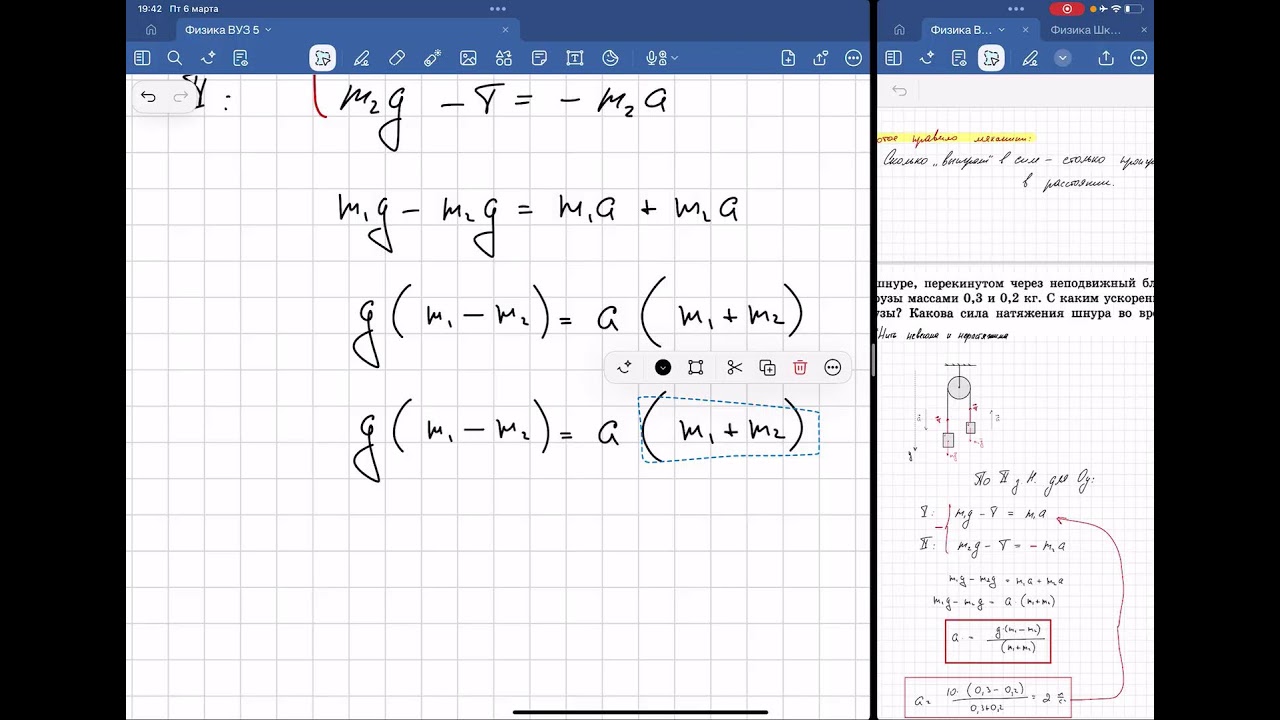 19:42 Пт 6 марта
Физика ВУЗ 5
II:
m₂g - T = - m₂a
m₁g - m₂g = m₁a + m₂a
g(m₁ - m₂) = a (m₁ + m₂)
g(m₁ - m₂) = a (m₁ + m₂)
Физика В...
Физика Шк...
отое правило механики:
Сколько „выиграй" в силе - столько
в расстоянии.
шнуре, перекинутом через неподвижный бл
рузы массами 0,3 и 0,2 кг. С каким ускорени
узы? Какова сила натяжения шнура во вре
Нить невесома и нерастяжима
По II з Н. для Oy:
I: m₁g - T = m₁a
II: m₂g - T = - m₂a
m₁g - m₂g = m₁a + m₂a
m₁g - m₂g = a · (m₁+m₂)
a = g·(m₁-m₂) / (m₁+m₂)
a = 10 · (0,3 - 0,2) / 0,3+0,2 = 2 м/с²